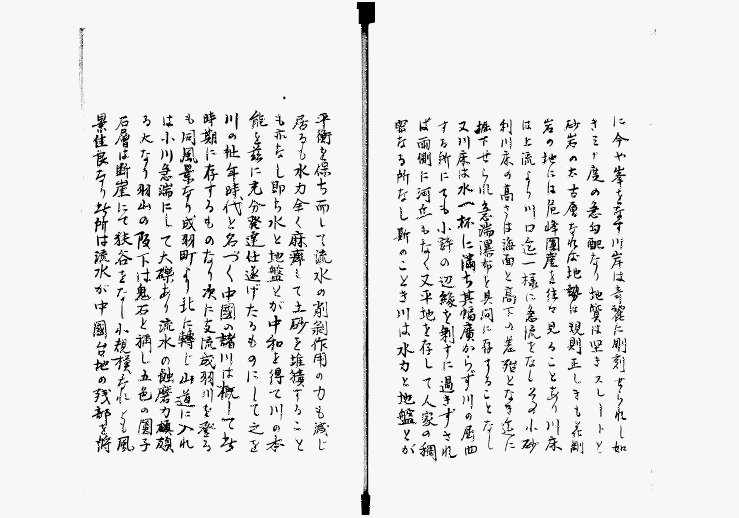 に今や峯をなす川岸は奇麗に彫刻せられし如
き三十度の急勾配なり地質は堅きスレートと
砂岩の太古層なれば地勢は規則正しきも花剛
岩の地には危峰圍崖を往々見ることあり川床
は上流より川口迄一様に急流をなしその小砂
利川床の高さは海面と高下の差殆となき迄に
掘下せられ急湍瀑布を其间に存することなし
又川床は水一杯に満ち其幅廣からず川の屈曲
する所にても小許の辺緣を剰すに過きずされ
ば両側に河丘もなく又平地を存して人家の稠
密なる所なし斯のごとき川は水力と地盤とが
平衡を保ち而して流水の削剝作用の力も減じ
居るも水力全く麻痺して土砂を堆積すること
も亦なし即ち水と地盤とが中和を得て川の本
能を茲に充分発達仕遂げたるものにして之を
川の壮年時代と名づく中國の諸川は概して此
時期に存するものなり次に支流成羽川を登る
も同風景なり成羽町より北に轉じ山道に入れ
は小川急湍にして大礫あり流水の蝕磨力頗
る大なり羽山の阪下は鬼石と稱し五色の圍子
石層は断崖にて狭谷をなし小規模なれども風
景佳良なり此所は流水が中國台地の残部を